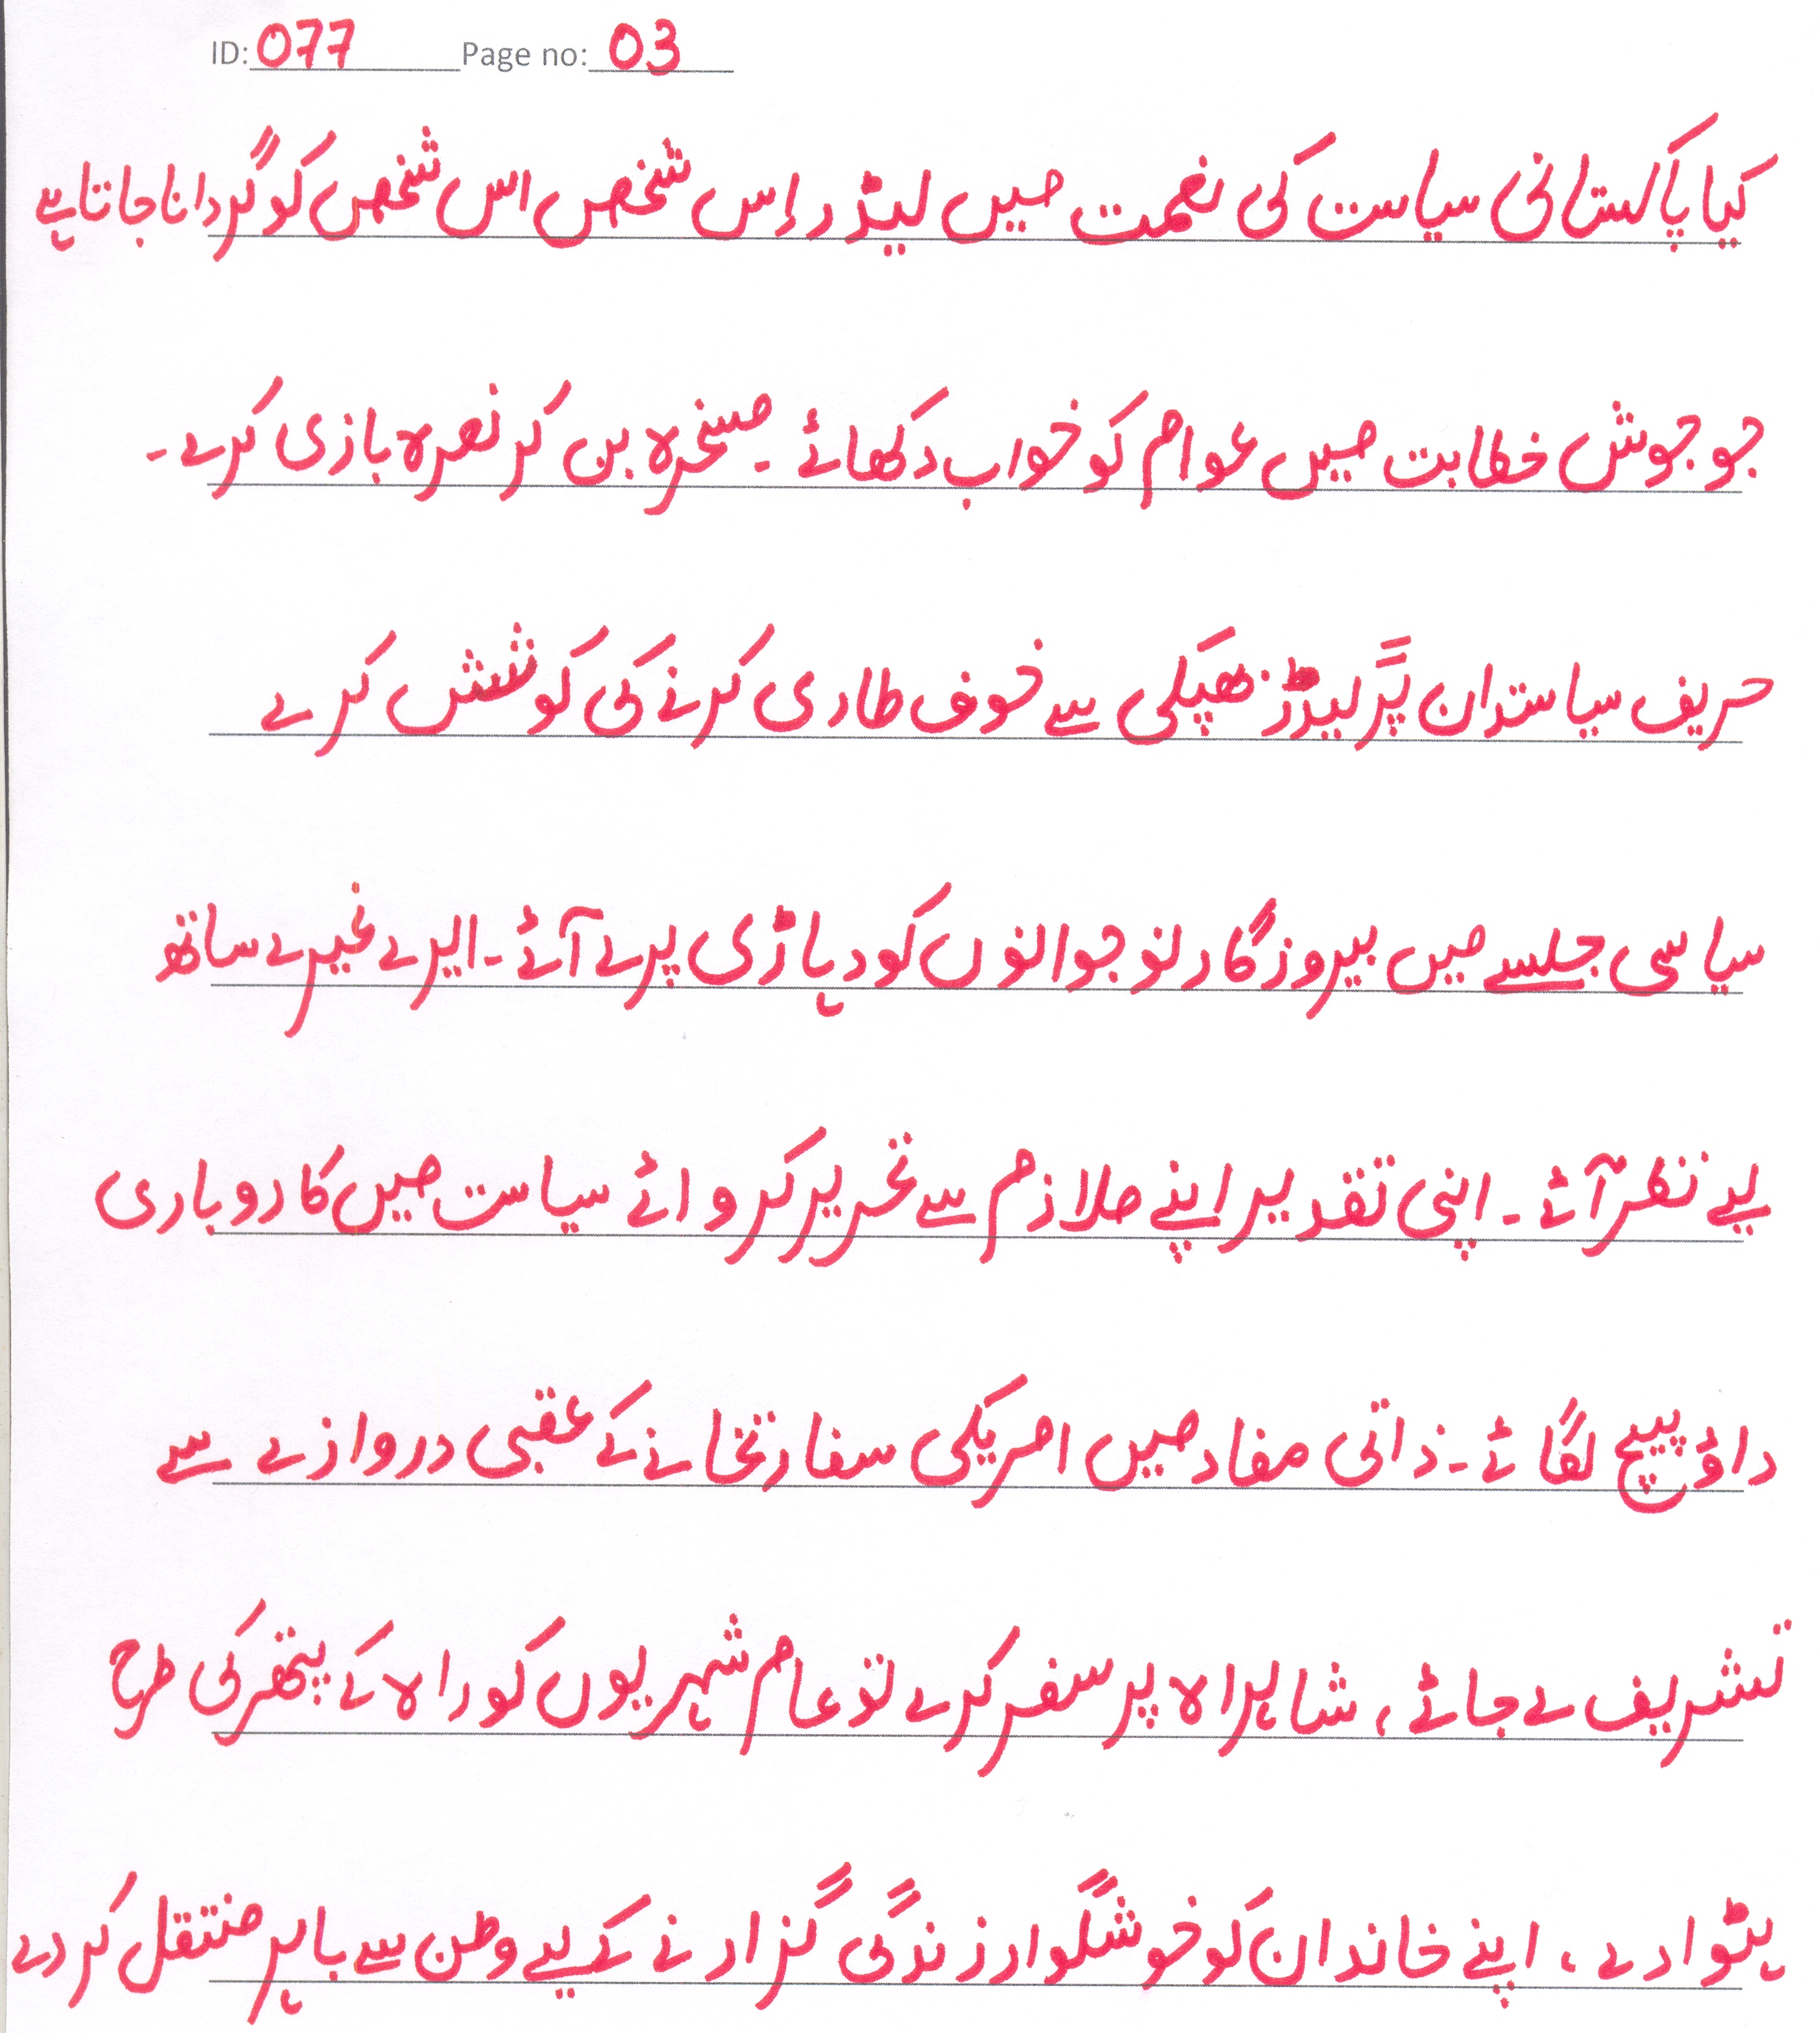 ID: 077 Page no: 03
کیا پاکستانی سیاست کی نعمت میں لیڈر اِس شخص اس شخص کو گردانا جاتا ہے
جو جوش خطابت میں عوام کو خواب دکھائے ۔ مسخرہ بن کر نعرہ بازی کرے ۔
حریف سیاستدان پر گیدڑ بھپکی سے خوف طاری کرنے کی کوشش کرے
سیاسی جلسے میں بیروزگار نوجوانوں کو دہاڑی پر لے آئے ۔ ایرے غیرے ساتھ
لیے نظر آئے ۔ اپنی تقدیر اپنے ملازم سے تحریر کروائے سیاست میں کاروباری
داؤ پیچ لگائے ۔ ذاتی مفاد میں امریکی سفارتخانے کے عقبی دروازے سے
تشریف لے جائے ، شاہراہ پر سفر کرے تو عام شہریوں کو راہ کے پتھر کی طرح
ہٹوا دے ، اپنے خاندان کو خوشگوار زندگی گزارنے کے لیے وطن سے باہر منتقل کر دے